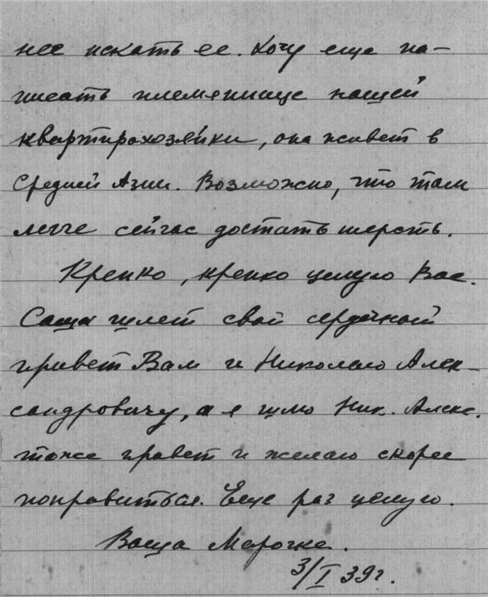 нее искать ее. Хочу еще на-
писать племяннице нашей
квартирохозяйки, она живет в
Средней Азии. Возможно, что там
легче сейчас достать шерсть.
Крепко, крепко целую Вас.
Саша шлет свой сердечный
привет Вам и Николаю Алек-
сандровичу, а я шлю Ник. Алекс.
тоже привет и желаю скорее
поправиться. Еще раз целую.
Ваша Марочка.
3/I 39г.